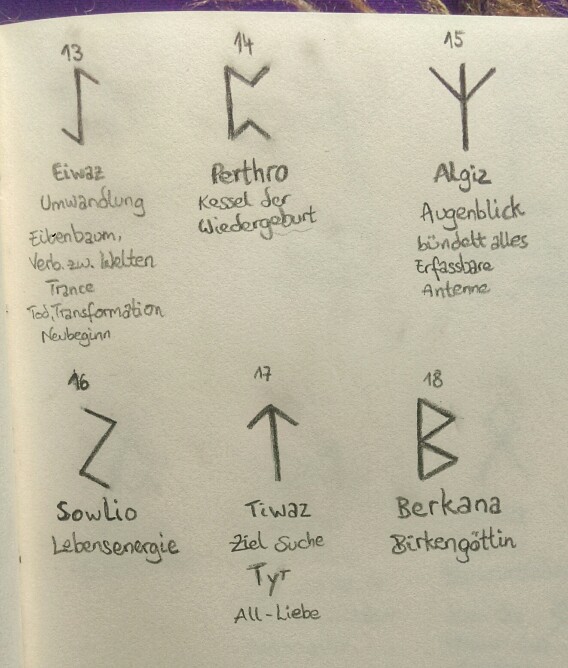 13
Eiwaz
Umwandlung
Eibenbaum,
Verb. zw. Welten
Trance
Tod, Transformation
Neubeginn
14
Perthro
Kessel der
Wiedergeburt
15
Algiz
Augenblick
bündelt alles
Erfassbare
Antenne
16
Sowlio
Lebensenergie
17
Tiwaz
Ziel Suche
Tyr
All-Liebe
18
Berkana
Birkengöttin